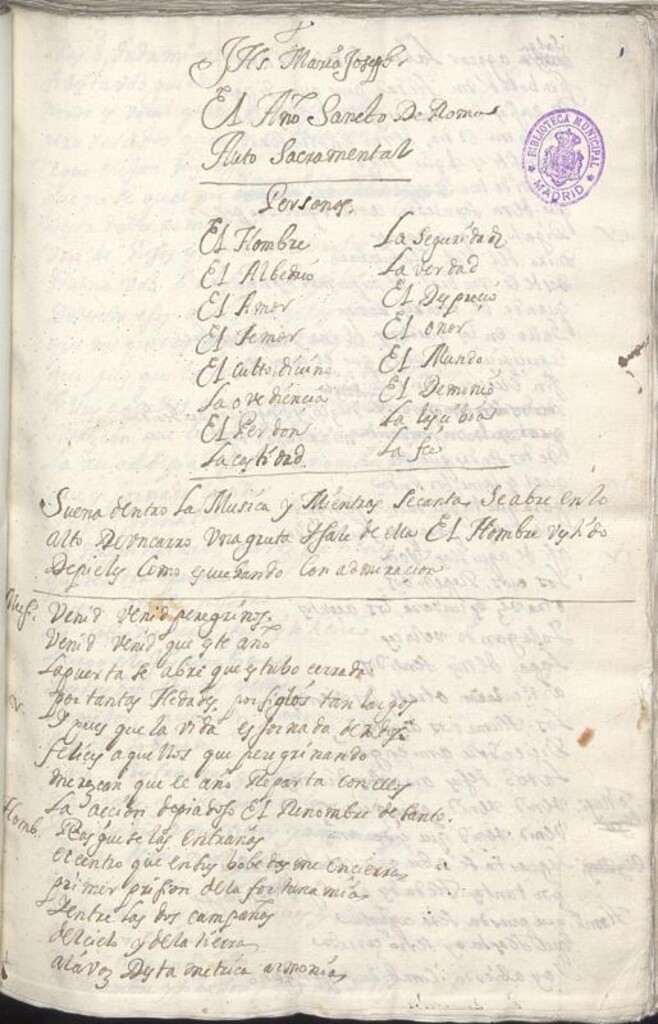 JHs. Maria Joseph
El Año Sancto De Roma
Auto Sacramental
Personas.
El Hombre
El Albedrio
El Amor
El Temor
El culto diuino
La ovediencia
El Perdon
La castidad
La Seguridad
La verdad
El Desprecio
El onor
El Mundo
El Demonio
La lascibia
La fee
BIBLIOTECA MUNICIPAL
MADRID
Suena dentro La Musica y Mientras Se canta, Se abre en lo
alto De un carro Una gruta y Sale de ella El Hombre vestido
De pieles Como escuchando Con admiracion
Mus. Venid venid peregrinos.
Venid venid que este año
La puerta se abre que estubo cerrada
por tantas Hedades, por siglos tan largos
Y pues que la vida es jornada de todos
felices aquellos que peregrinando
merezcan que el año Reparta con ellos
La accion de piadoso El Renombre de Santo.
Homb. Rasguense las Entrañas
el centro que en sus bobedas me encierra
primer prision de la fortuna mia
Y entre las dos campañas
del cielo y de la tierra
a la voz de esta metrica armonia